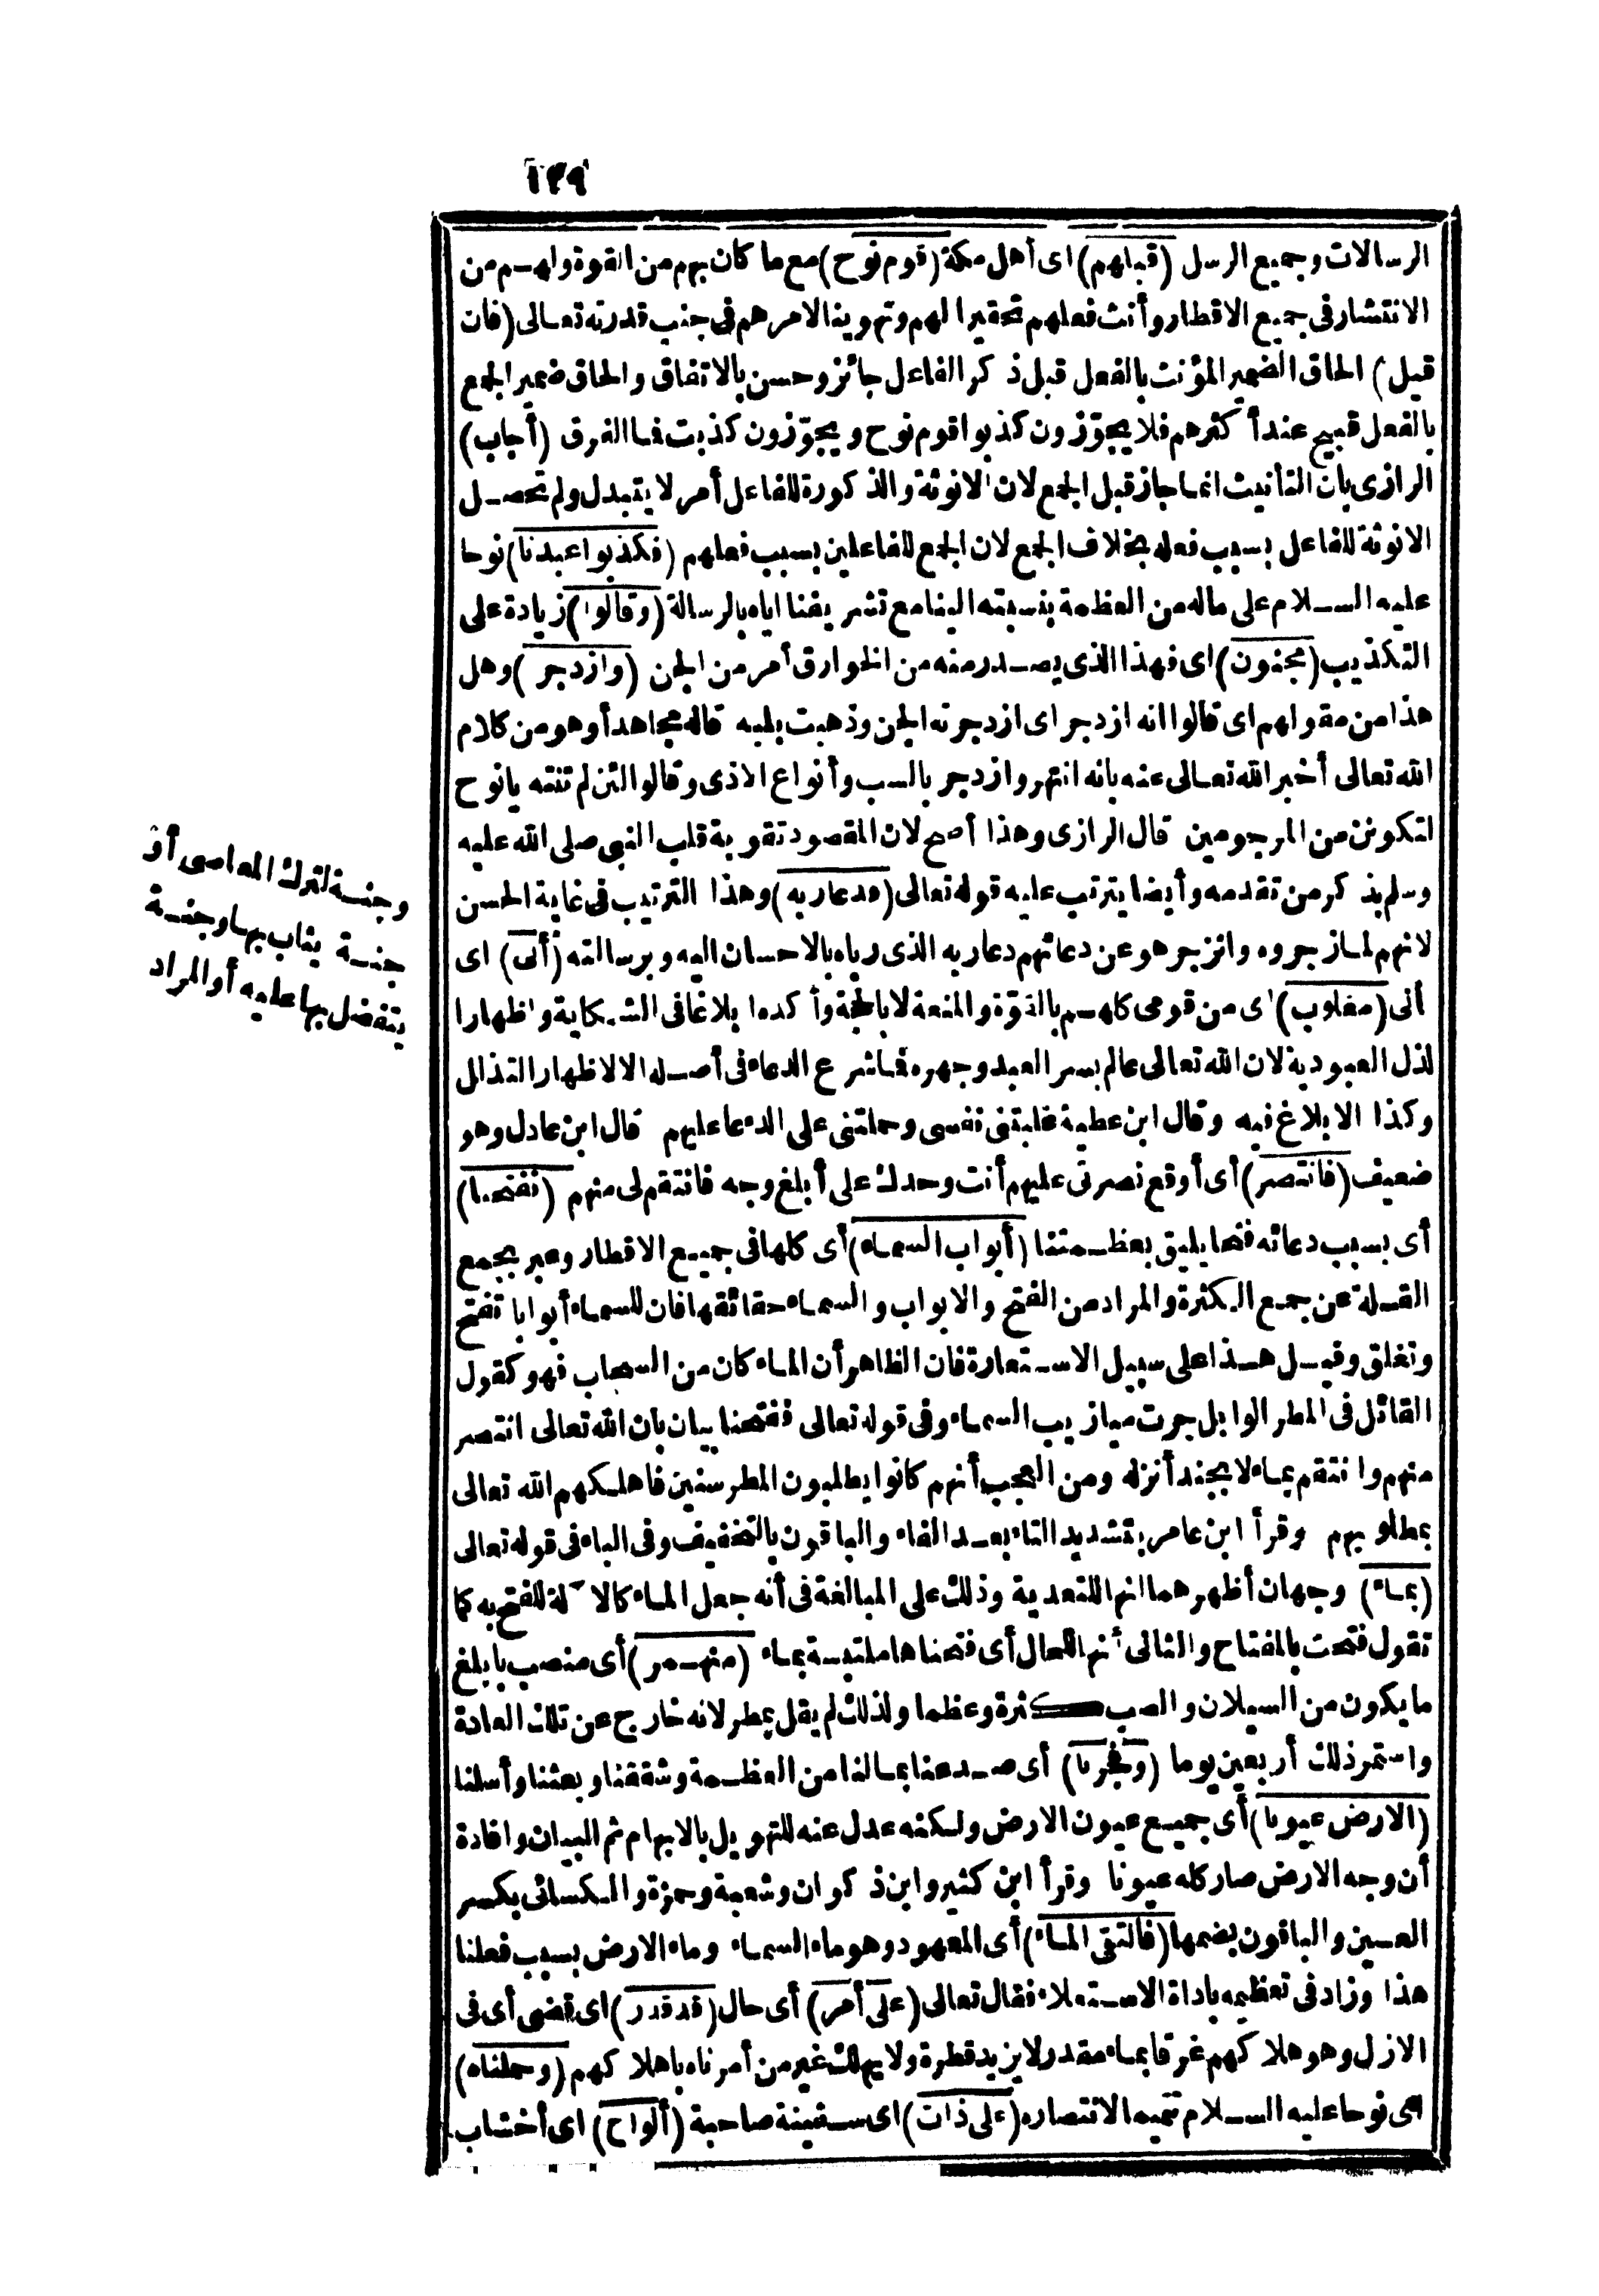 ١٣٩
الرسالات وجميع الرسل (قبلهم) اى أهل مكة (قوم نوح) مع ما كان بهم من القوة ولهم من
الانتشار فى جميع الاقطار وأنث فعلهم تحقيرا لهم وتهوينا لامرهم فى جنب قدرته تعالى (فان
قيل) الحاق الضمير المؤنث بالفعل قبل ذكر الفاعل جائز وحسن بالاتفاق والحاق ضمير الجمع
بالفعل قبيح عند أكثرهم فلا يجوّزون كذبوا قوم نوح ويجوّزون كذبت فما الفرق (أجاب)
الرازى بان التأنيث انما جاز قبل الجمع لان الانوثة والذكورة للفاعل أمر لا يتبدل ولم تحصل
الانوثة للفاعل بسبب فعله بخلاف الجمع لان الجمع للفاعلين بسبب فعلهم (فكذبوا عبدنا) نوحا
عليه السلام على ماله من العظمة بنسبته الينا مع تشريفنا اياه بالرسالة (وقالوا) زيادة على
التكذيب (مجنون) اى فهذا الذى يصدر منه من الخوارق أمر من الجن (وازدجر) وهل
هذا من مقولهم اى قالوا انه ازدجر اى ازدجرته الجن وذهبت بلبه قاله مجاهد أو هو من كلام
الله تعالى أخبر الله تعالى عنه بانه انتهر وازدجر بالسب وأنواع الاذى وقالوا لئن لم تنته يا نوح
لتكونن من المرجومين قال الرازى وهذا أصح لان المقصود تقوية قلب النبى صلى الله عليه
وسلم بذكر من تقدمه وأيضا يترتب عليه قوله تعالى (فدعا ربه) وهذا الترتيب فى غاية الحسن
لانهم لما زجروه وانزجر هو عن دعائهم دعا ربه الذى رباه بالاحسان اليه وبرسالته (أنى) اى
أنى (مغلوب) اى من قومى كلهم بالقوّة والمنعة لا بالحجة وأكده ابلاغا فى الشكاية واظهارا
لذل العبودية لان الله تعالى عالم بسر العبد وجهره فما شرع الدعاء فى أصله الا لاظهار التذلل
وكذا الابلاغ فيه وقال ابن عطية غلبتنى نفسى وحملتنى على الدعا عليهم قال ابن عادل وهو
ضعيف (فانتصر) أى أوقع نصرتى عليهم أنت وحدك على أبلغ وجه فانتقم لى منهم (ففتحنا)
أى بسبب دعائه فتحا يليق بعظمتنا (أبواب السماء) أى كلها فى جميع الاقطار وعبر بجمع
القلة عن جمع الكثرة والمراد من الفتح والابواب والسماء حقائقها فان للسماء أبوابا تفتح
وتغلق وقيل هذا على سبيل الاستعارة فان الظاهر أن الماء كان من السحاب فهو كقول
القائل فى المطر الوابل جرت ميازيب السماء وفى قوله تعالى ففتحنا بيان بان الله تعالى انتصر
منهم وانتقم بماء لا بجند أنزله ومن العجب أنهم كانوا يطلبون المطر سنين فاهلكهم الله تعالى
بمطلوبهم وقرأ ابن عامر بتشديد التاء بعد الفاء والباقون بالتخفيف وفى الباء فى قوله تعالى
(بماء) وجهان أظهرهما انها للتعدية وذلك على المبالغة فى أنه جعل الماء كالآلة للفتح به كما
تقول فتحت بالمفتاح والثانى أنها للحال أى فتحناها ملتبسة بماء (منهمر) أى منصب بابلغ
ما يكون من السيلان والصب كثرة وعظما ولذلك لم يقل بمطر لانه خارج عن تلك العادة
واستمر ذلك أربعين يوما (وفجرنا) أى صدعنا بمالنا من العظمة وشققنا وبعثنا وأسلنا
(الارض عيونا) أى جميع عيون الارض ولكنه عدل عنه للتهويل بالابهام ثم البيان وافادة
أن وجه الارض صار كله عيونا وقرأ ابن كثير وابن ذكوان وشعبة وحمزة والكسائى بكسر
العين والباقون بضمها (فالتقى الماء) أى المعهود وهو ماء السماء وماء الارض بسبب فعلنا
هذا وزاد فى تعظيمه باداة الاستعلاء فقال تعالى (على أمر) أى حال (قد قدر) اى قضى أى فى
الازل وهو هلاكهم غرقا بماء مقدر لا يزيد قطرة ولا يهلك غير من أمرناه باهلاكهم (وحملناه)
اى نوحا عليه السلام تتميما لانتصاره (على ذات) اى سفينة صاحبة (ألواح) اى أخشاب
وجنسة لترك المعاصى أو
جنسة يثاب بها وجنسة
يتفضل بها عليه أو المراد